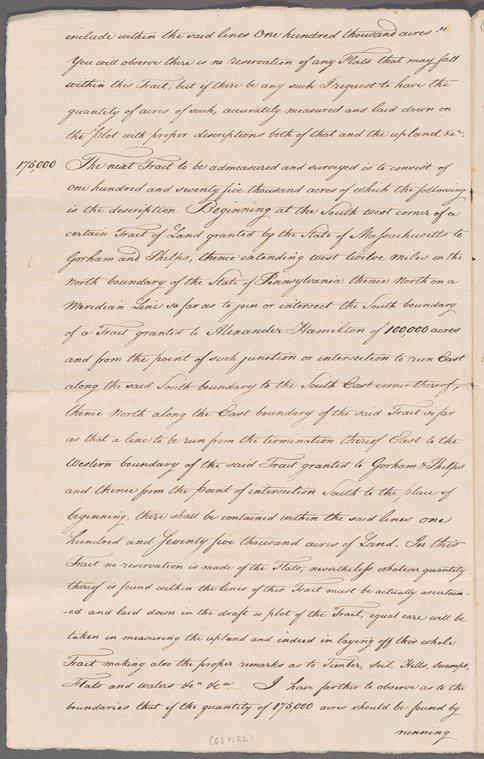 include within the said lines One hundred thousand acres."
You will observe there is no reservation of any Flats that may fall
within this Tract, but if there be any such I request to have the
quantity of acres of such, accurately measured and laid down on
the Plot with proper descriptions both of that and the upland &ca.
175,000 The next Tract to be admeasured and surveyed is to consist of
one hundred and seventy five thousand acres of which the following
is the description. Beginning at the South west corner of a
certain Tract of Land granted by the State of Massachusetts to
Gorham and Phelps, thence extending west twelve miles on the
North boundary of the State of Pennsylvania thence North on a
Meridian Line so far as to join or intersect the South boundary
of a Tract granted to Alexander Hamilton of 100,000 acres
and from the point of such junction or intersection to run East
along the said South boundary to the South East corner thereof,
thence North along the East boundary of the said Tract so far
as that a line to be run from the termination thereof East to the
Western boundary of the said Tract granted to Gorham & Phelps
and thence from the point of intersection South to the place of
beginning, there shall be contained within the said lines one
hundred and Seventy five thousand acres of Land. In this
Tract no reservation is made of the Flats, nevertheless whatever quantity
thereof is found within the lines of this Tract must be actually ascertain-
-ed and laid down in the draft or plot of the Tract, equal care will be
taken in measuring the upland and indeed in laying off this whole
Tract making also the proper remarks as to Timber, soil, Hills, swamps,
Flats and waters &ca &ca — I have further to observe as to the
boundaries that if the quantity of 175,000 acres should be found by
running
(63 M 52)